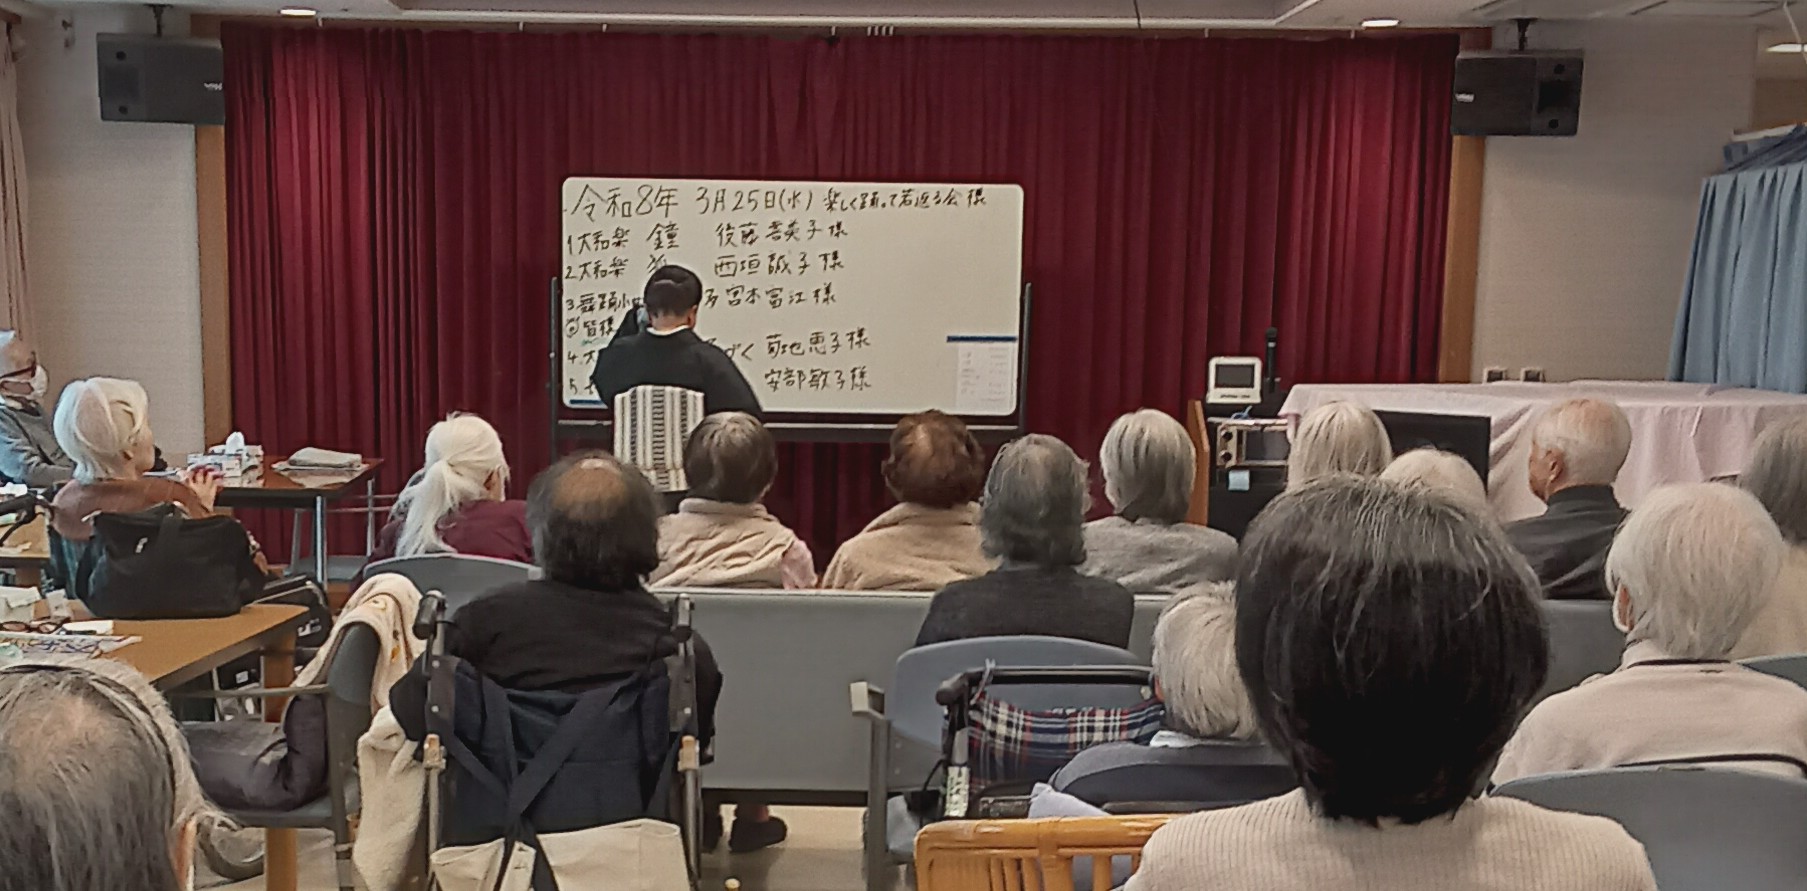 令和8年 3月25日(水) 楽しく踊って若返る会様
1大和楽 鐘 後藤喜美子様
2.大和楽 狐 西垣誠子様
3舞踊小 宮本富江様
皆様
4.大 づく 菊地恵子様
5. 安部敏子様